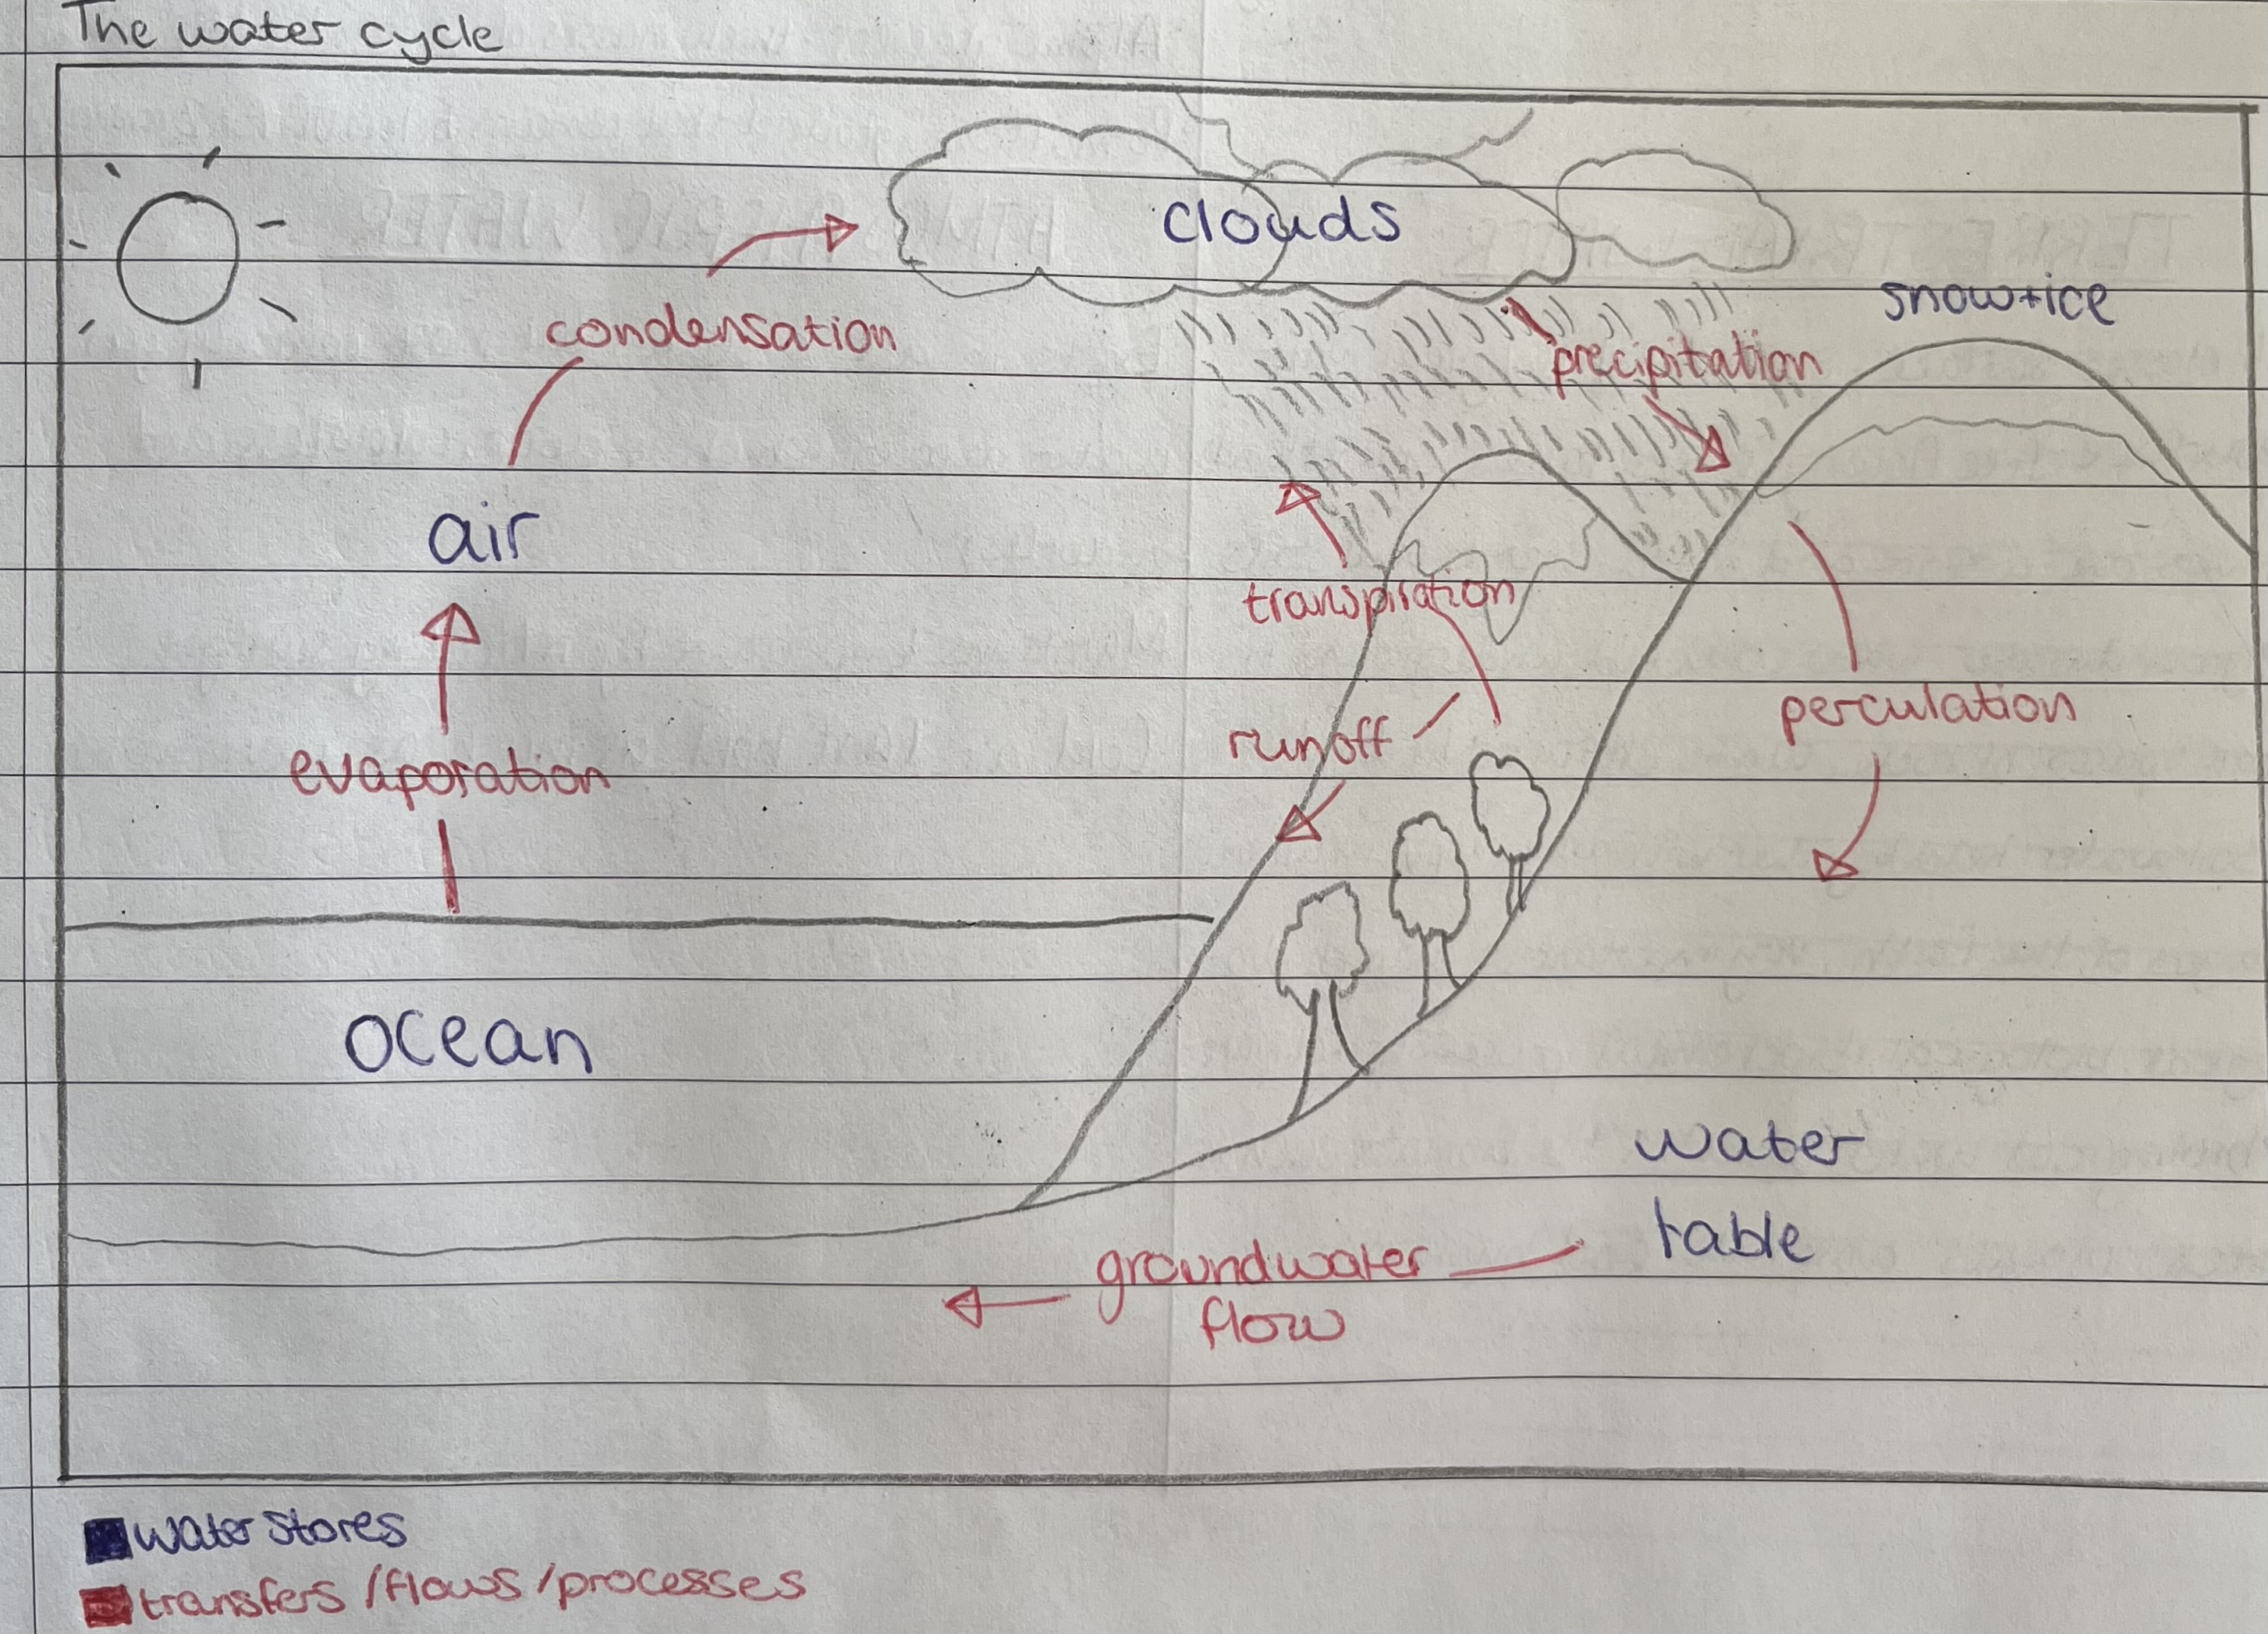 The water cycle
clouds
snow+ice
condensation
precipitation
air
transpiration
perculation
runoff
evaporation
ocean
water
table
groundwater
flow
water stores
transfers/flows/processes